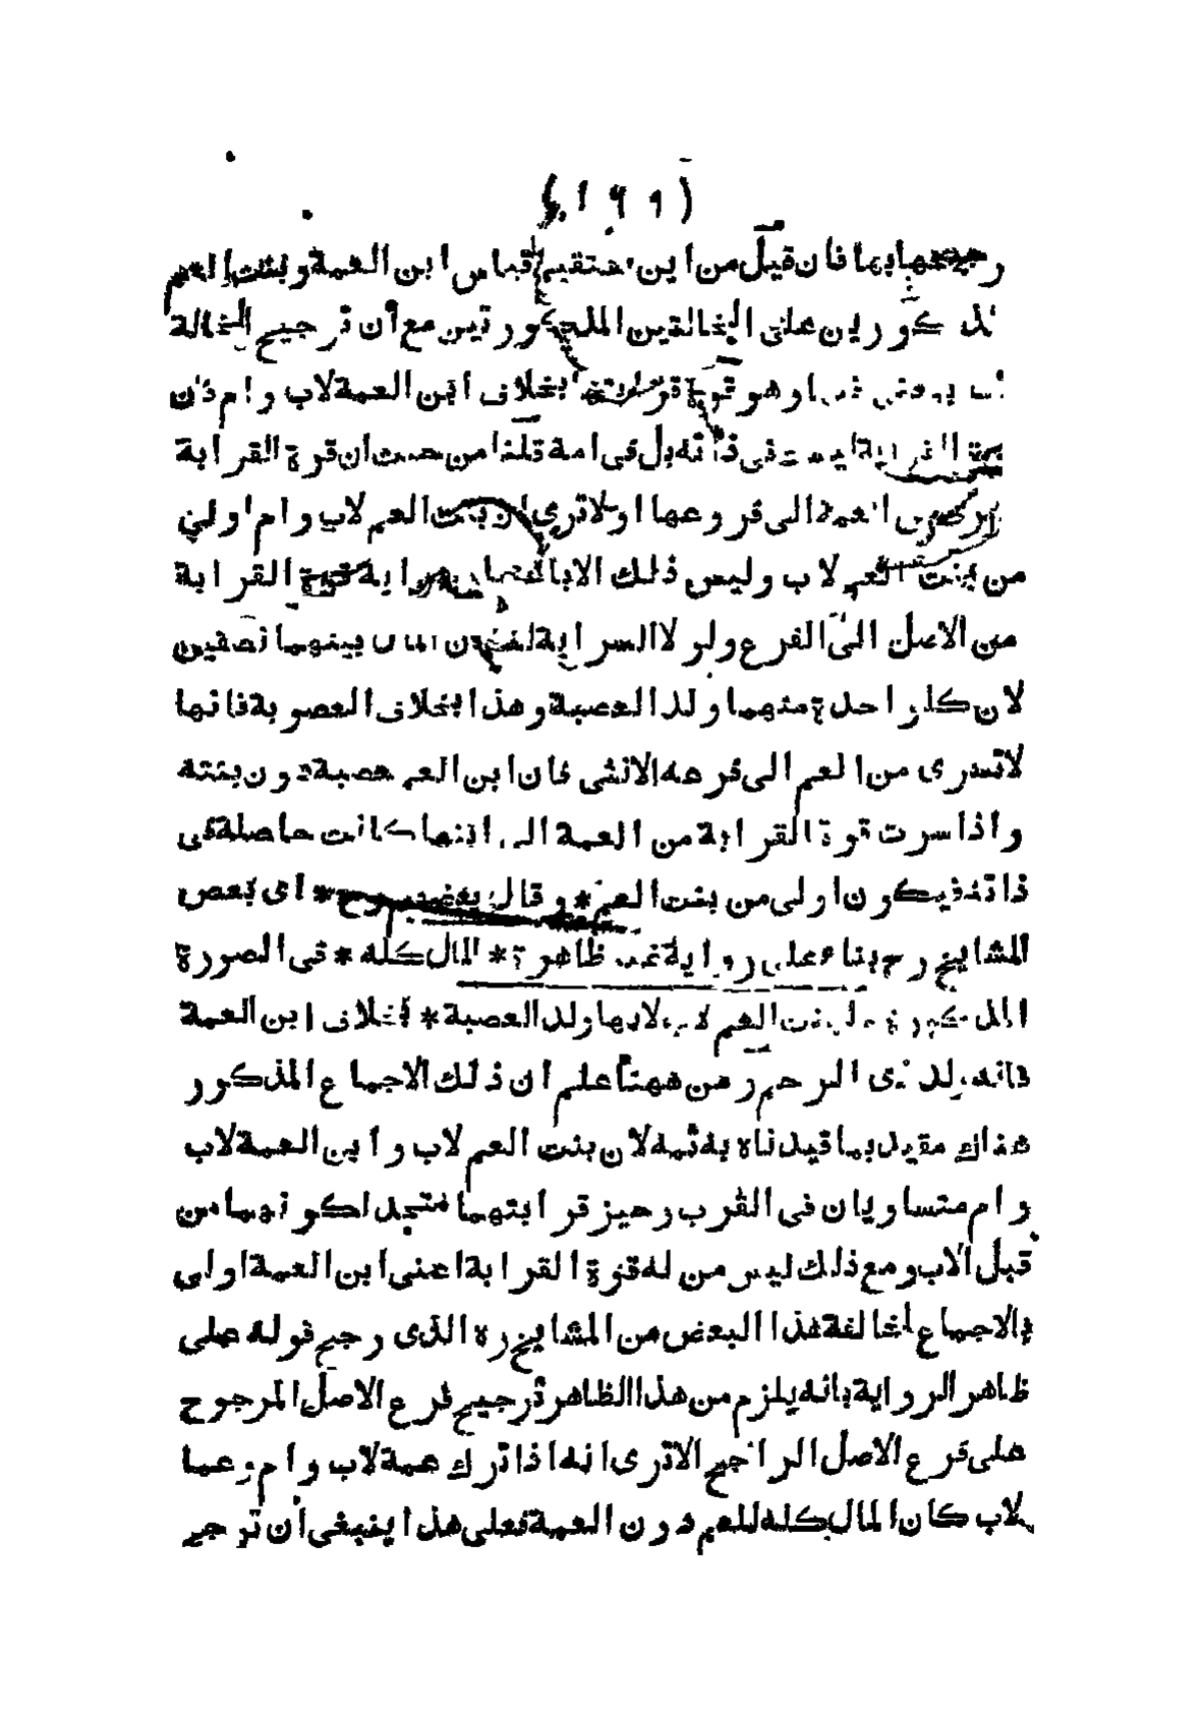 (١٩١)
بهما فان قيل من اين يستقيم قياس ابن العمة وبنت العم
المذكورين على الخالتين المذكورتين مع أن ترجيح الخالة
وهو قوة بخلاف ابن العمة لاب وام فان
القرابة ليست فى ذاته بل فى امه قلنا من حيث ان قوة القرابة
العمة الى فروعها اولا ترى ان بنت العم لاب وام اولى
من بنت العم لاب وليس ذلك الا القرابة
من الاصل الى الفرع ولولا السراية المال بينهما نصفين
لان كل واحدة منهما ولد العصبة وهذا بخلاف العصوبة فانها
لا تسرى من العم الى فرعه الانثى فان ابن العم عصبة دون بنته
واذا سرت قوة القرابة من العمة الى ابنها كانت حاصلة فى
ذاته فيكون اولى من بنت العم * وقال بعضهم رح * اى بعض
المشايخ رح بناء على رواية غير ظاهرة * المال كله * فى الصورة
المذكورة لبنت العم لاب لانها ولد العصبة * بخلاف ابن العمة
فانه ولد ذى الرحم ومن ههنا علم ان ذلك الاجماع المذكور
هناك مقيد بما قيدناه به ثمه لان بنت العم لاب وابن العمة لاب
وام متساويان فى القرب وحيز قرابتهما متحد لكونهما من
قبل الاب ومع ذلك ليس من له قوة القرابة اعنى ابن العمة اولى
بالاجماع لمخالفة هذا البعض من المشايخ ره الذى رجح قوله على
ظاهر الرواية بانه يلزم من هذا الظاهر ترجيح فرع الاصل المرجوح
على فرع الاصل الراجح الا ترى انه اذا ترك عمة لاب وام وعما
لاب كان المال كله للعم دون العمة فعلى هذا ينبغى أن ترجح